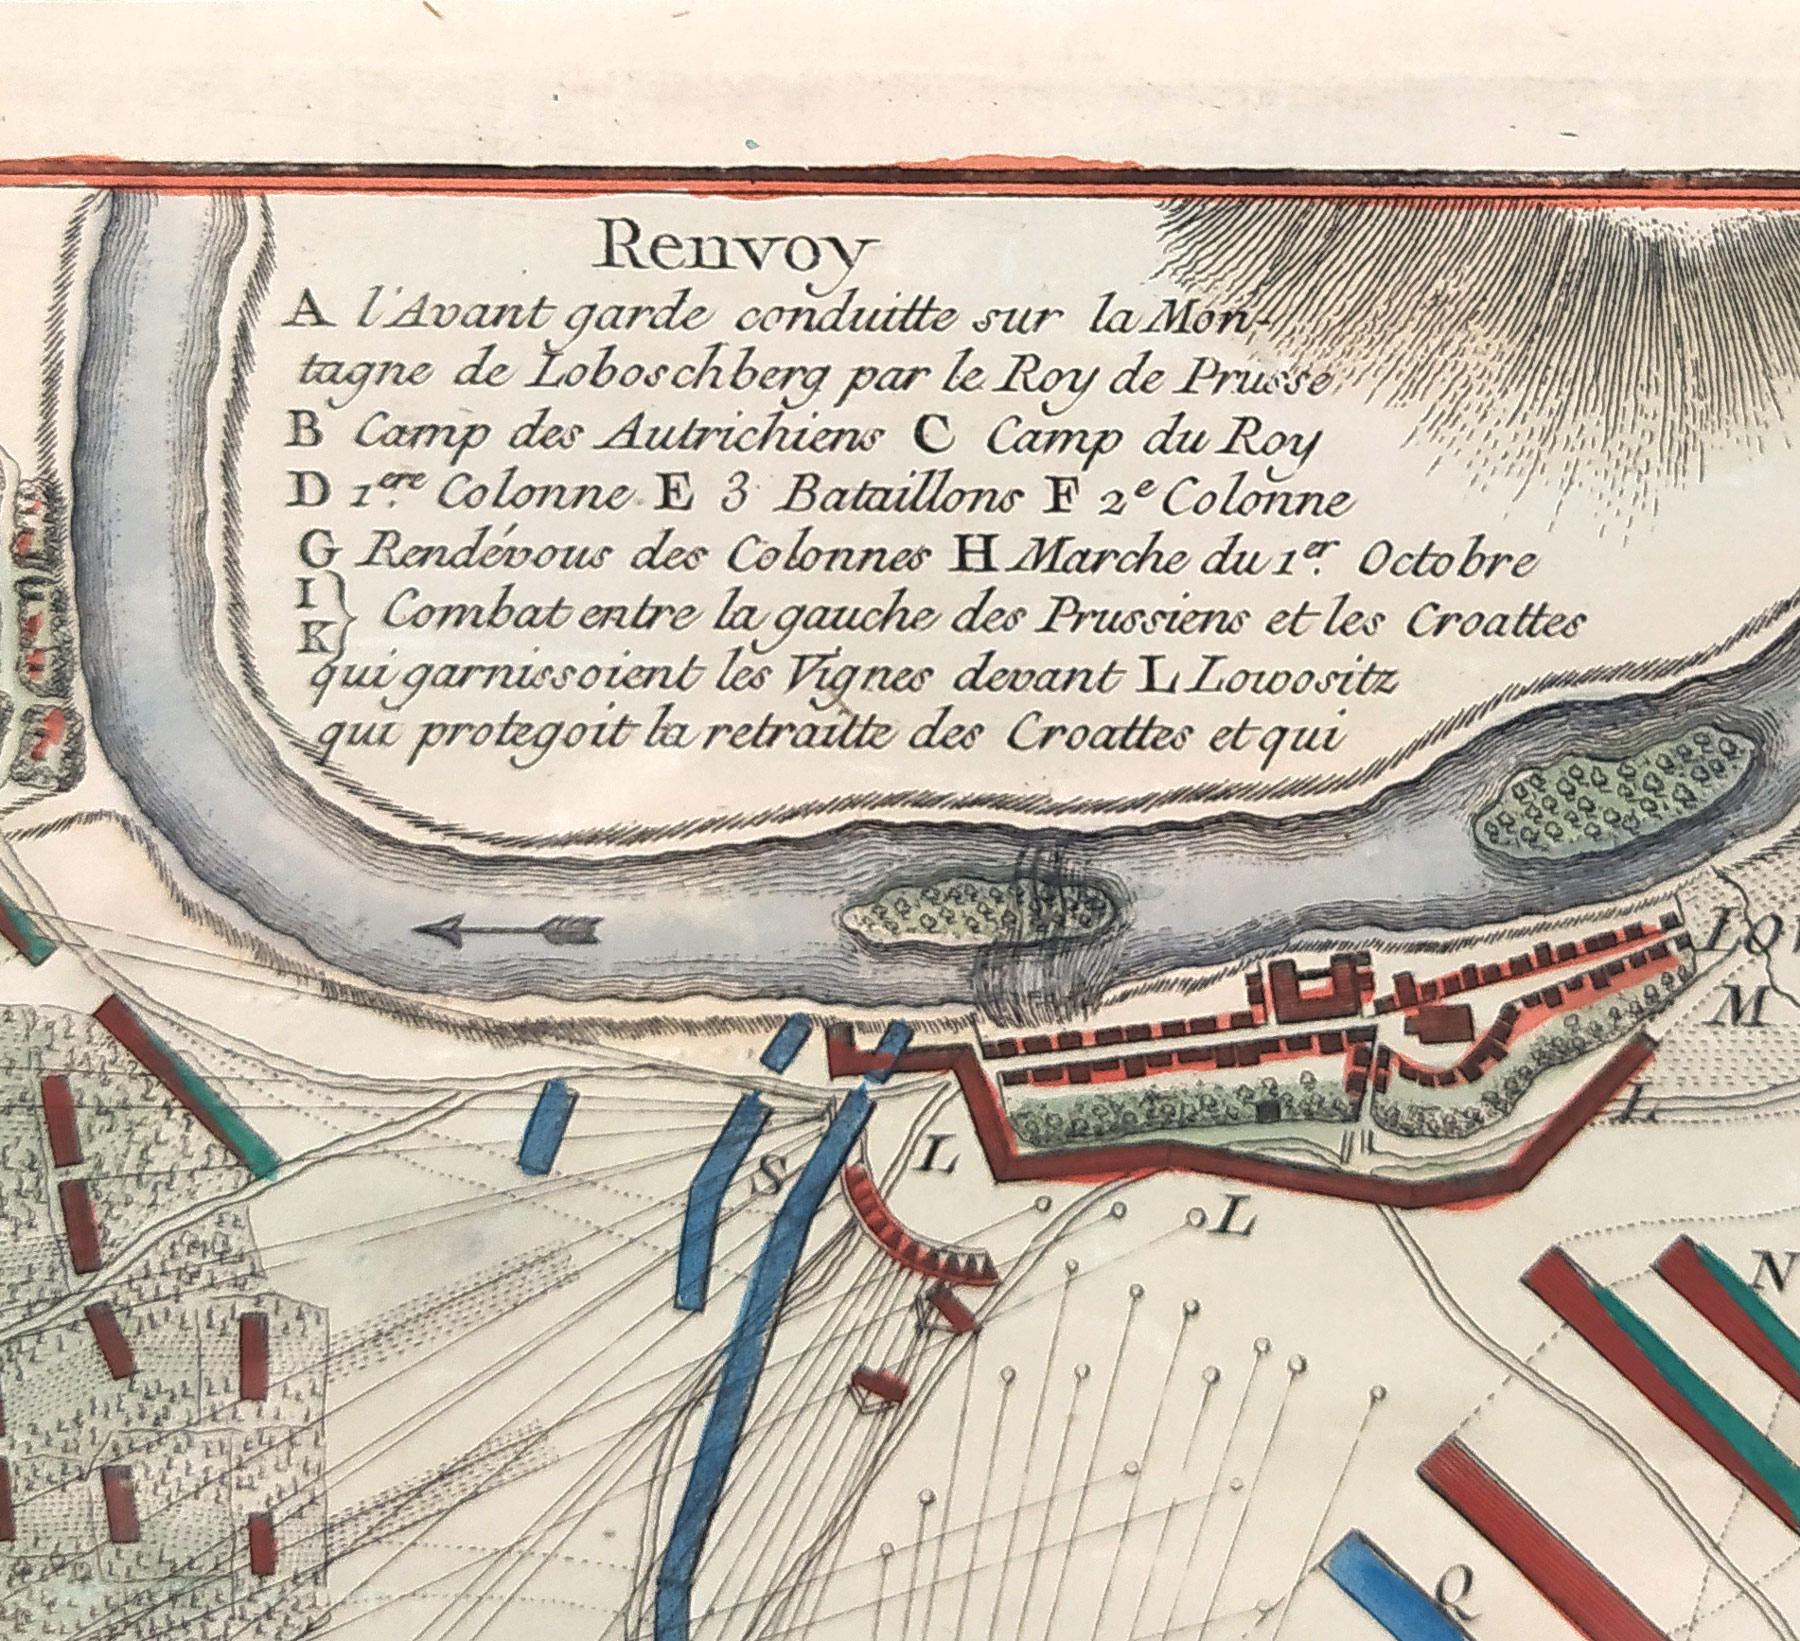 Renvoy
A l'Avant garde conduitte sur la Mon-
tagne de Loboschberg par le Roy de Prusse
B Camp des Autrichiens C Camp du Roy
D 1.ere Colonne E 3 Bataillons F 2e Colonne
G Rendévous des Colonnes H Marche du 1.er Octobre
I
K } Combat entre la gauche des Prussiens et les Croattes
qui garnissoient les Vignes devant L Lowositz
qui protegoit la retraitte des Croattes et qui
LOW
M
L
L
S
L
N
Q